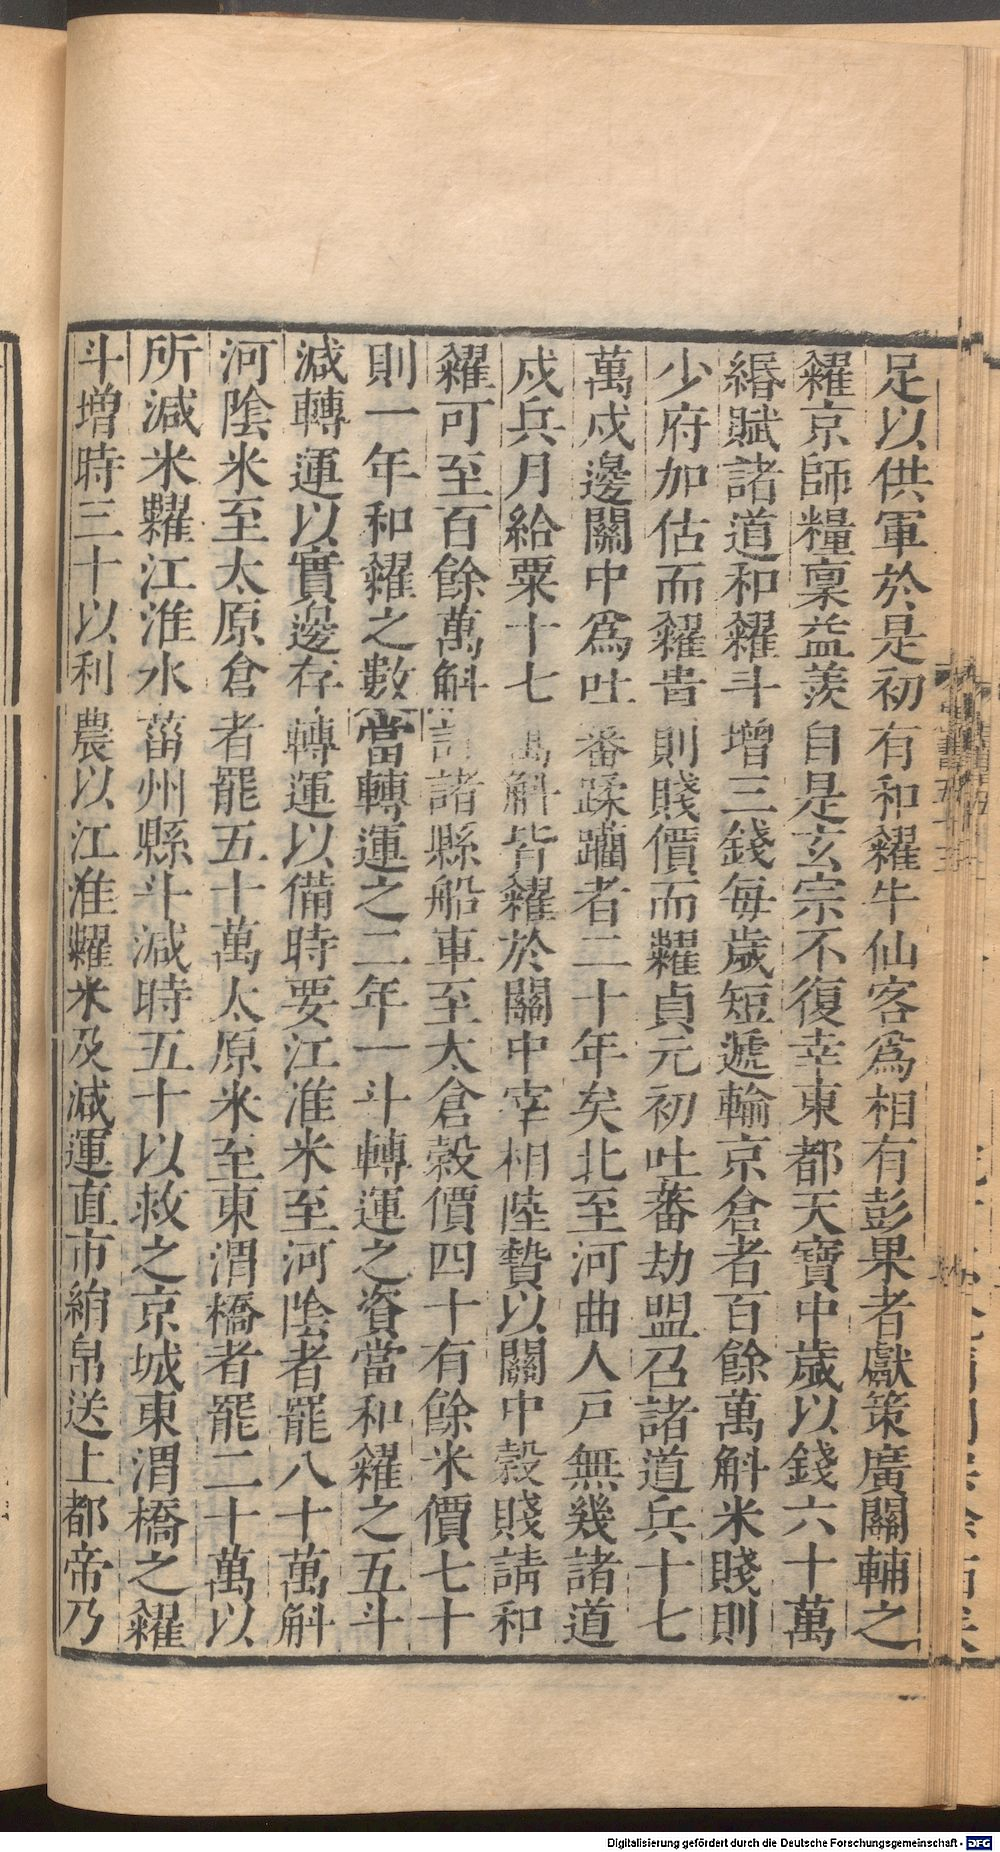 足以供軍於是初有和糴牛仙客爲相有彭果者獻策廣關輔之
糴京師糧稟益羨自是玄宗不復幸東都天寶中歲以錢六十萬
緡賦諸道和糴斗增三錢每歲短遞輪京倉者百餘萬斛米賤則
少府加估而糴貴則賤價而糶貞元初吐蕃劫盟召諸道兵十七
萬戍邊關中爲吐蕃蹂躪者二十年矣北至河曲人戸無幾諸道
戍兵月給粟十七萬斛皆糴於關中宰相陸贄以關中穀賤請和
糴可至百餘萬斛計諸縣船車至太倉穀價四十有餘米價七十
則一年和糴之數當轉運之二年一斗轉運之資當和糴之五斗
減轉運以實邊存轉運以備時要江淮米至河陰者罷八十萬斛
河陰米至太原倉者罷五十萬太原米至東渭橋者罷二十萬以
所減米糶江淮水菑州縣斗減時五十以救之京城東渭橋之糴
斗增時三十以利農以江淮糶米及減運直市絹帛送上都帝乃
Digitalisierung gefördert durch die Deutsche Forschungsgemeinschaft - DFG